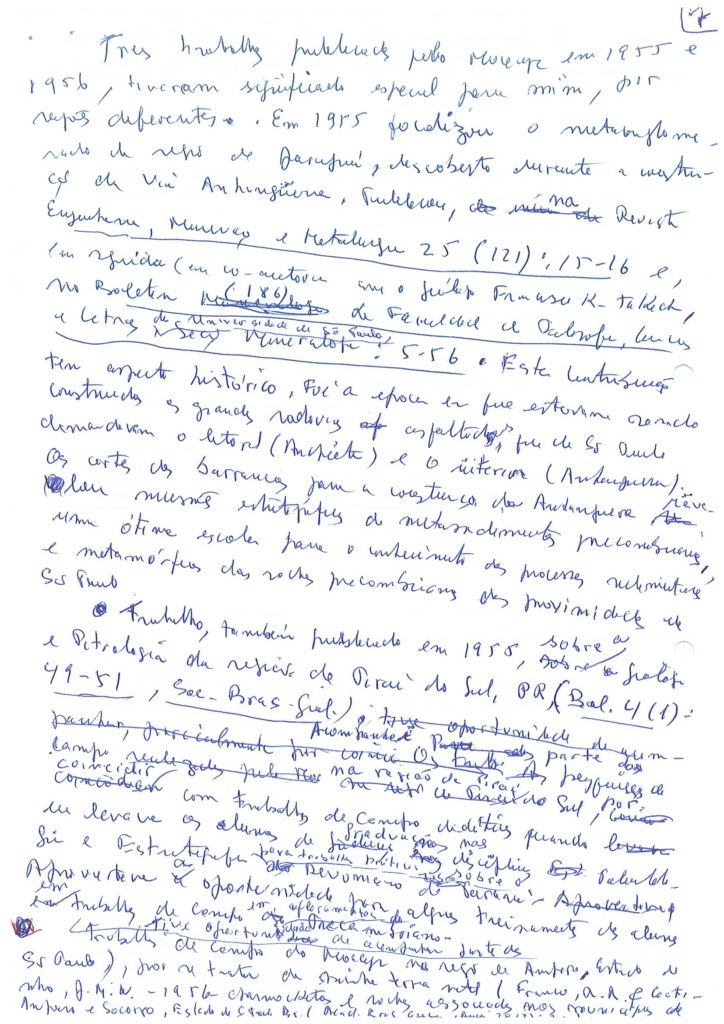 7
Tres trabalhos publicados pelo Moacyr em 1955 e
1956, tiveram significado especial para mim, por
razões diferentes. Em 1955 focalizou o metaconglome-
rado da região de Jaraguá, descoberto durante a constru-
ção da Via Anhangüera, Publicou, na Revista
Engenharia, Mineração e Metalurgia 25 (121): 15-16 e,
em seguida (em co-autoria com o geólogo Francisco K. Takeda,
no Boletim (186) da Faculdade de Filosofia, Ciências
e Letras da Universidade de São Paulo, Seção Mineralogia: 5-56. Esta contribuição
tem aspecto histórico, Foi a época em que estavam sendo
construidas as grandes rodovias asfaltadas, que de São Paulo
demandavam o litoral (Anchieta) e o interior (Anhanguera).
Os cortes dos barrancos para a construção da Anhanguera reve-
lou estratigráficas de metassedimentos precambrianos,
uma ótima escola para o conhecimento dos processos sedimentares
e metamórficos das rochas precambrianas das proximidades de
São Paulo
Trabalho, também publicado em 1955, sobre a Geologia
e Petrologia da região de Piraí do Sul, PR, (Bol. 4 (1):
49-51, Soc. Bras. Geol.) tive oportunidade de acom-
panhar, parcialmente por Acompanhei parte das pesquisas de
campo na região de Piraí do Sul, por
coincidir com trabalhos de campo didáticos quando
eu levava os alunos de graduação nas disciplinas Paleontolo-
gia e Estratigrafia para trabalhos práticos sobre o Devoniano do Paraná.
Aproveitava a oportunidade para algum treinamento dos alunos
em trabalhos de campo em afloramentos do
tive oportunidade de acompanhar parte dos
trabalhos de campo do Moacyr na região de Amparo, Estado de
São Paulo), por se tratar de minha terra natal (Franco, R.R. & Couti-
nho, J.M.V. - 1956 charnockitos e rochas associadas nos municípios de
Amparo e Socorro, Estado de S. Paulo Br. (Acad. Bras.